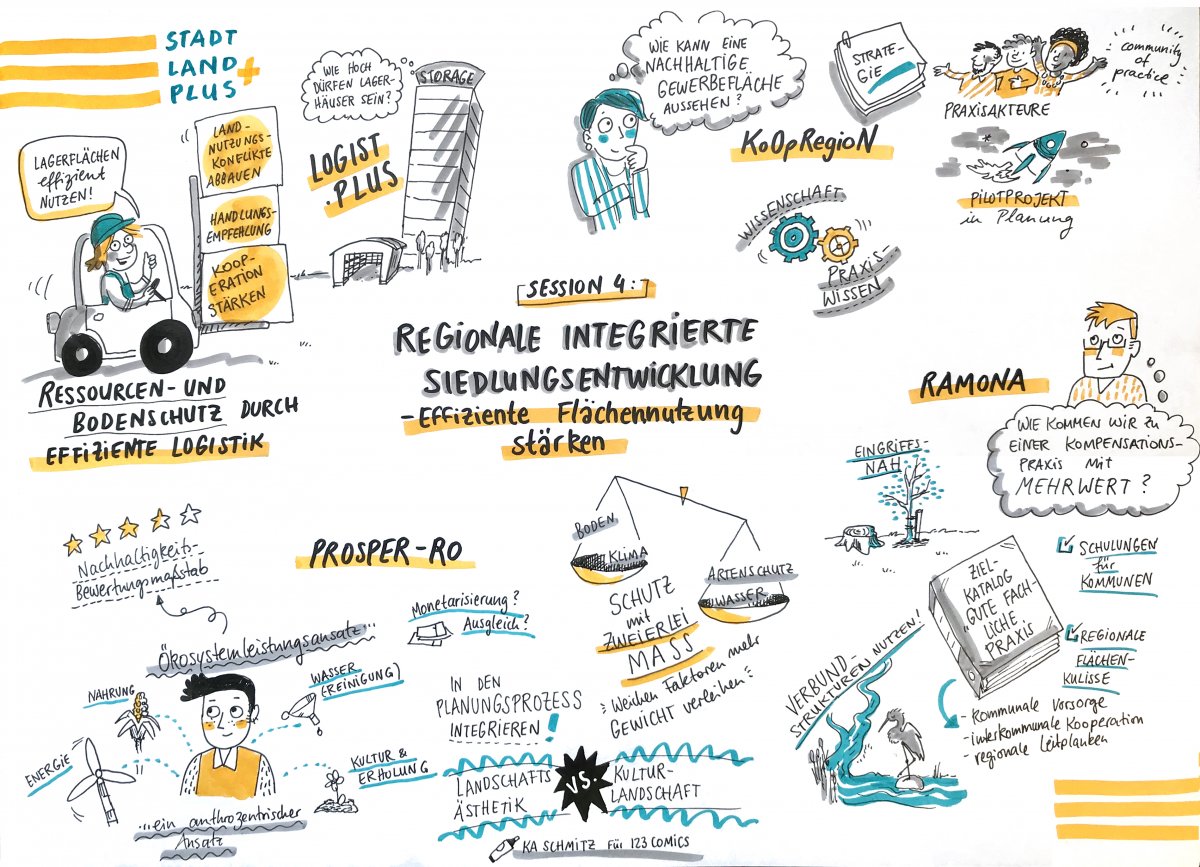 STADT
LAND
PLUS +
LAGERFLÄCHEN
effizient
NUTZEN!
LAND-
NUTZUNGS-
KONFLIKTE
ABBAUEN
HANDLUNGS-
EMPFEHLUNG
KOOP-
ERATION
STÄRKEN
RESSOURCEN- UND
BODENSCHUTZ DURCH
EFFIZIENTE LOGISTIK
WIE HOCH
DÜRFEN LAGER-
HÄUSER SEIN?
STORAGE
LOGIST
.PLUS
WIE KANN EINE
NACHHALTIGE
GEWERBEFLÄCHE
AUSSEHEN?
STRATE-
GIE
KoOpRegioN
community
of
practice
PRAXISAKTEURE
PILOTPROJEKT
in Planung
WISSENSCHAFT
PRAXIS
WISSEN
SESSION 4:
REGIONALE INTEGRIERTE
SIEDLUNGSENTWICKLUNG
-Effiziente Flächennutzung
stärken
RAMONA
WIE KOMMEN WIR ZU
EINER KOMPENSATIONS-
PRAXIS MIT
MEHRWERT?
EINGRIFFS-
NAH
ZIEL-
KATALOG
"GUTE FACH-
LICHE
PRAXIS
SCHULUNGEN
für
KOMMUNEN
REGIONALE
FLÄCHEN-
KULISSE
- Kommunale Vorsorge
- interkommunale Kooperation
- regionale Leitplanken
VERBUND-
STRUKTUREN NUTZEN!
PROSPER-RO
Nachhaltigkeits-
Bewertungsmaßstab
Ökosystemleistungsansatz...
NAHRUNG
WASSER
(REINIGUNG)
ENERGIE
KULTUR &
ERHOLUNG
...ein anthrozentrischer
Ansatz
Monetarisierung?
Ausgleich?
IN DEN
PLANUNGSPROZESS
INTEGRIEREN!
BODEN
KLIMA
ARTENSCHUTZ
WASSER
SCHUTZ
mit
ZWEIERLEI
MASS
Weichen Faktoren mehr
GEWICHT verleihen
LANDSCHAFTS
ÄSTHETIK
VS.
KULTUR-
LANDSCHAFT
KA SCHMITZ FÜR 123COMICS